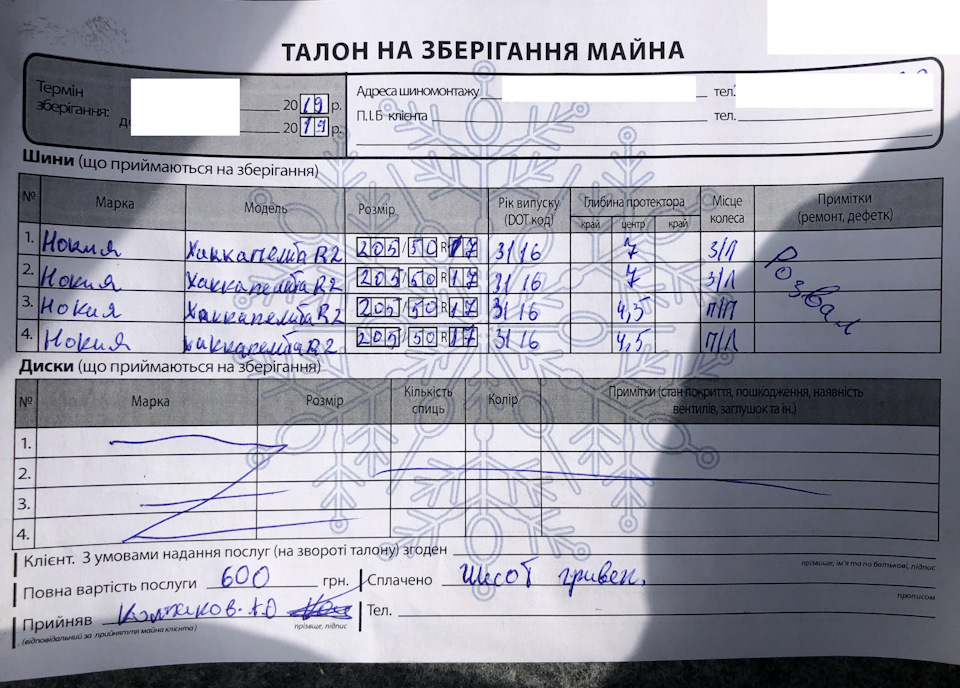 ТАЛОН НА ЗБЕРІГАННЯ МАЙНА
Термін зберігання:
2019 р.
до 2019 р.
Адреса шиномонтажу тел.
П.І.Б клієнта тел.
Шини (що приймаються на зберігання)
№ Марка Модель Розмір Рік випуску (DOT код) Глибина протектора край центр край Місце колеса Примітки (ремонт, дефетк)
1. Нокия Хаккапелита R2 205/50 R17 3116 7 З/П Розвал
2. Нокия Хаккапелита R2 205/50 R17 3116 7 З/Л
3. Нокия Хаккапелита R2 205/50 R17 3116 4,5 П/П
4. Нокия Хаккапелита R2 205/50 R17 3116 4,5 П/Л
Диски (що приймаються на зберігання)
№ Марка Розмір Кількість спиць Колір Примітки (стан покриття, пошкодження, наявність вентилів, заглушок та ін.)
1.
2.
3.
4.
Клієнт. З умовами надання послуг (на звороті талону) згоден
прізвище, ім'я та по батькові, підпис
Повна вартість послуги 600 грн. Сплачено Шісот гривен.
прописом
Прийняв Тел.
(відповідальний за прийняття майна клієнта) прізвище, підпис